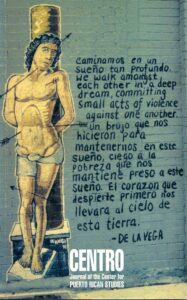 Caminamos en un
sueño tan profundo.
We walk amongst
each other in a deep
dream, committing
small acts of violence
against one another.
Un brujo que nos
hicieron para
mantenernos en este
sueño, ciego a la
pobreza que nos
mantiene preso a este
sueño. El corazon que
despierte primero nos
llevara al cielo de
esta tierra.
-DE LA VEGA
CENTRO
Journal of the Center for
PUERTO RICAN STUDIES